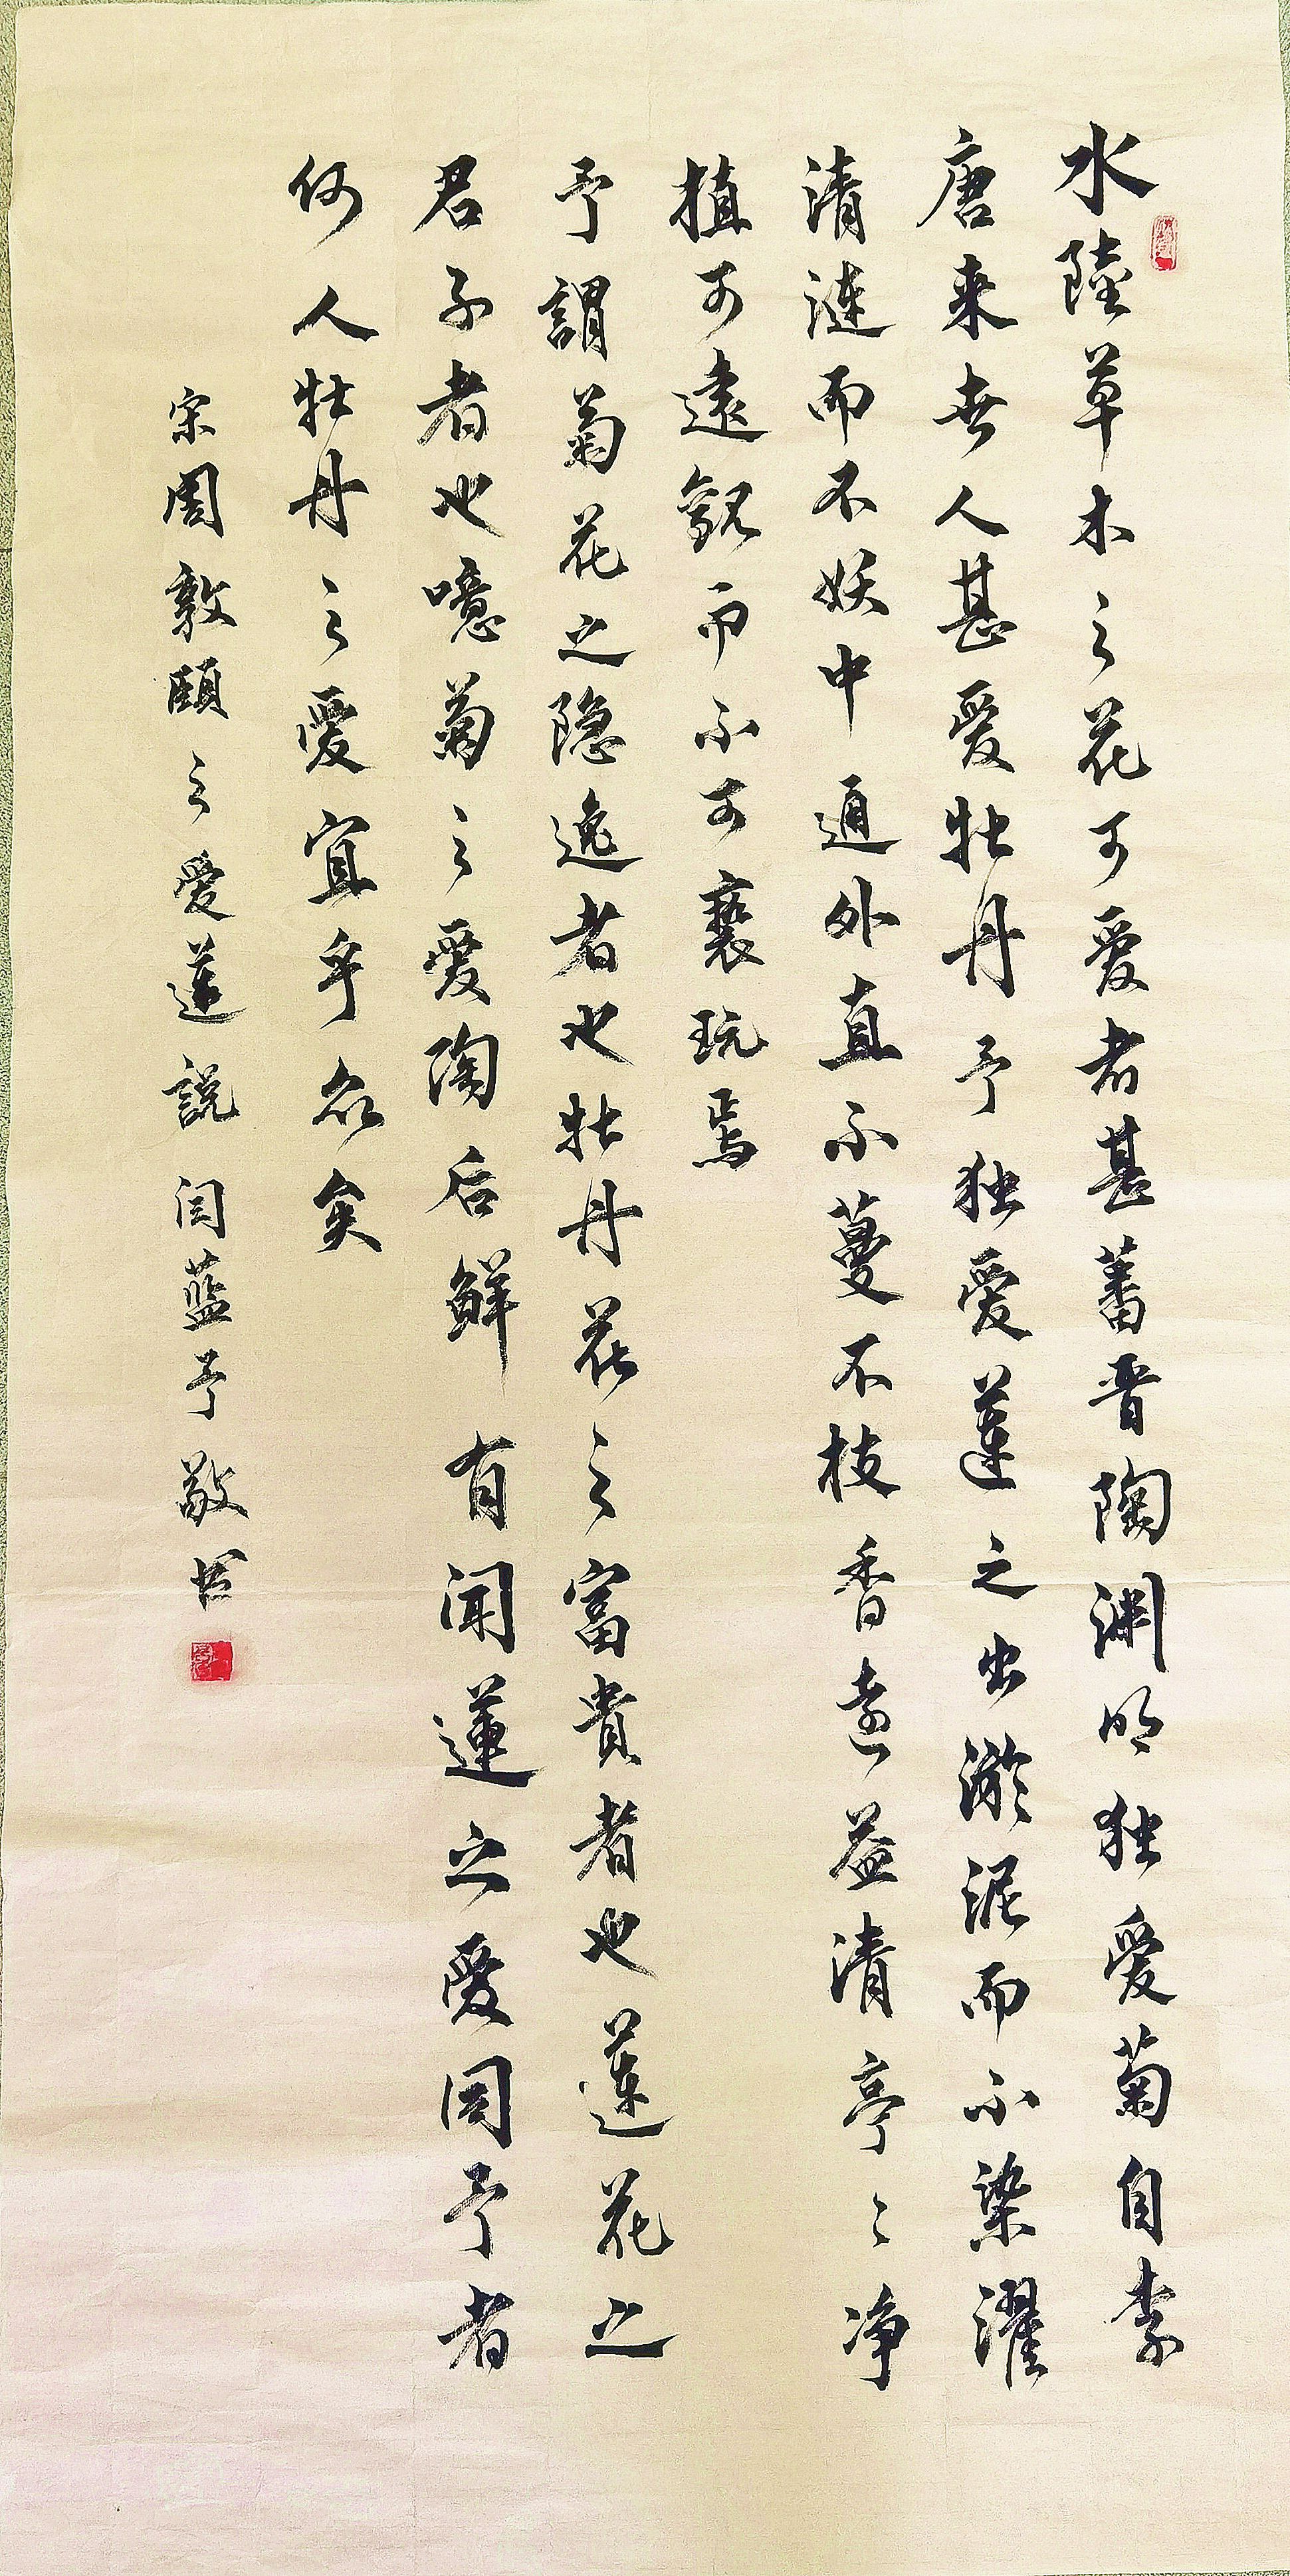 水陸草木之花可爱者甚蕃晋陶渊明独爱菊自李
唐来世人甚爱牡丹予独爱莲之出淤泥而不染濯
清涟而不妖中通外直不蔓不枝香遠益清亭〻净
植可遠觀而不可褻玩焉
予謂菊花之隐逸者也牡丹花之富貴者也蓮花之
君子者也噫菊之爱陶后鮮有闻蓮之爱同予者
何人牡丹之爱宜乎众矣
宋周敦頤之爱蓮説 闫蓝予敬书